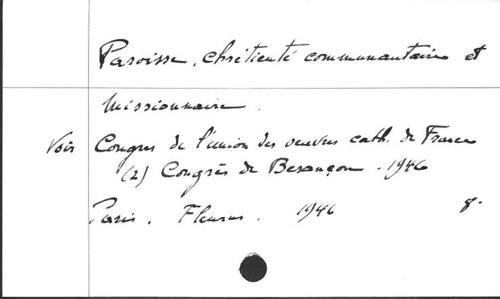 Paroisse, chrétienté communautaire et
missionnaire.
Voir Congres de l'union des oeuvres cath. de France
(2) Congrès de Besançon. 1946
Paris. Fleurus. 1946 8.